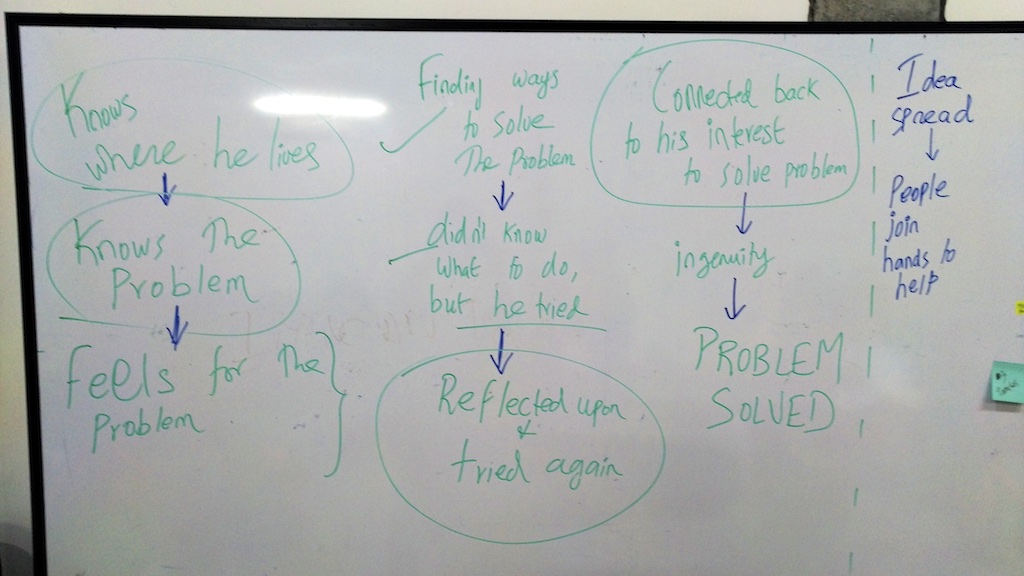 Knows
where he lives
Knows The
Problem
feels for the
Problem
Finding ways
to solve
The Problem
didn't know
What to do,
but he tried
Reflected upon
&
tried again
Connected back
to his interest
to solve problem
ingenuity
PROBLEM
SOLVED
Idea
spread
People
join
hands to
help